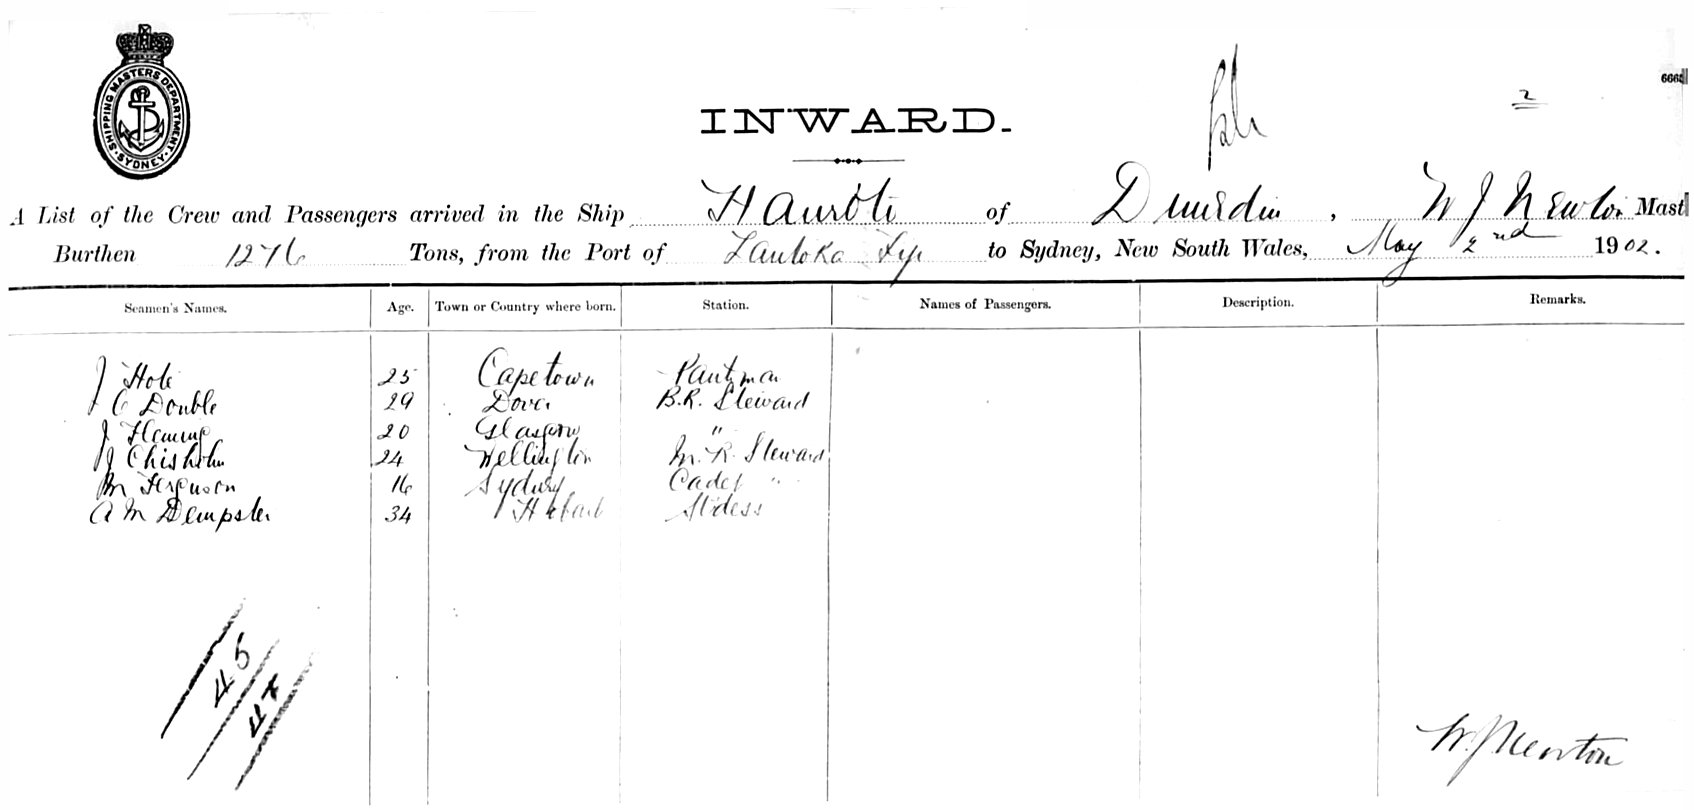 SHIPPING MASTERS DEPARTMENT · SYDNEY ·
6668
2
INWARD.
A List of the Crew and Passengers arrived in the Ship Hauroto of Dunedin, W J Newton Mast
Burthen 1276 Tons, from the Port of Lautoka Fiji to Sydney, New South Wales, May 2nd 1902.
Seamen's Names. Age. Town or Country where born. Station. Names of Passengers. Description. Remarks.
J Hole 25 Capetown Pantryman
J C Double 29 Dover B.R. Steward
J Fleming 20 Glasgow "
J Chisholm 24 Wellington M.R. Steward
M Ferguson 16 Sydney Cadet "
A M Dempster 34 Hobart Stdess
45
47
W. J Newton